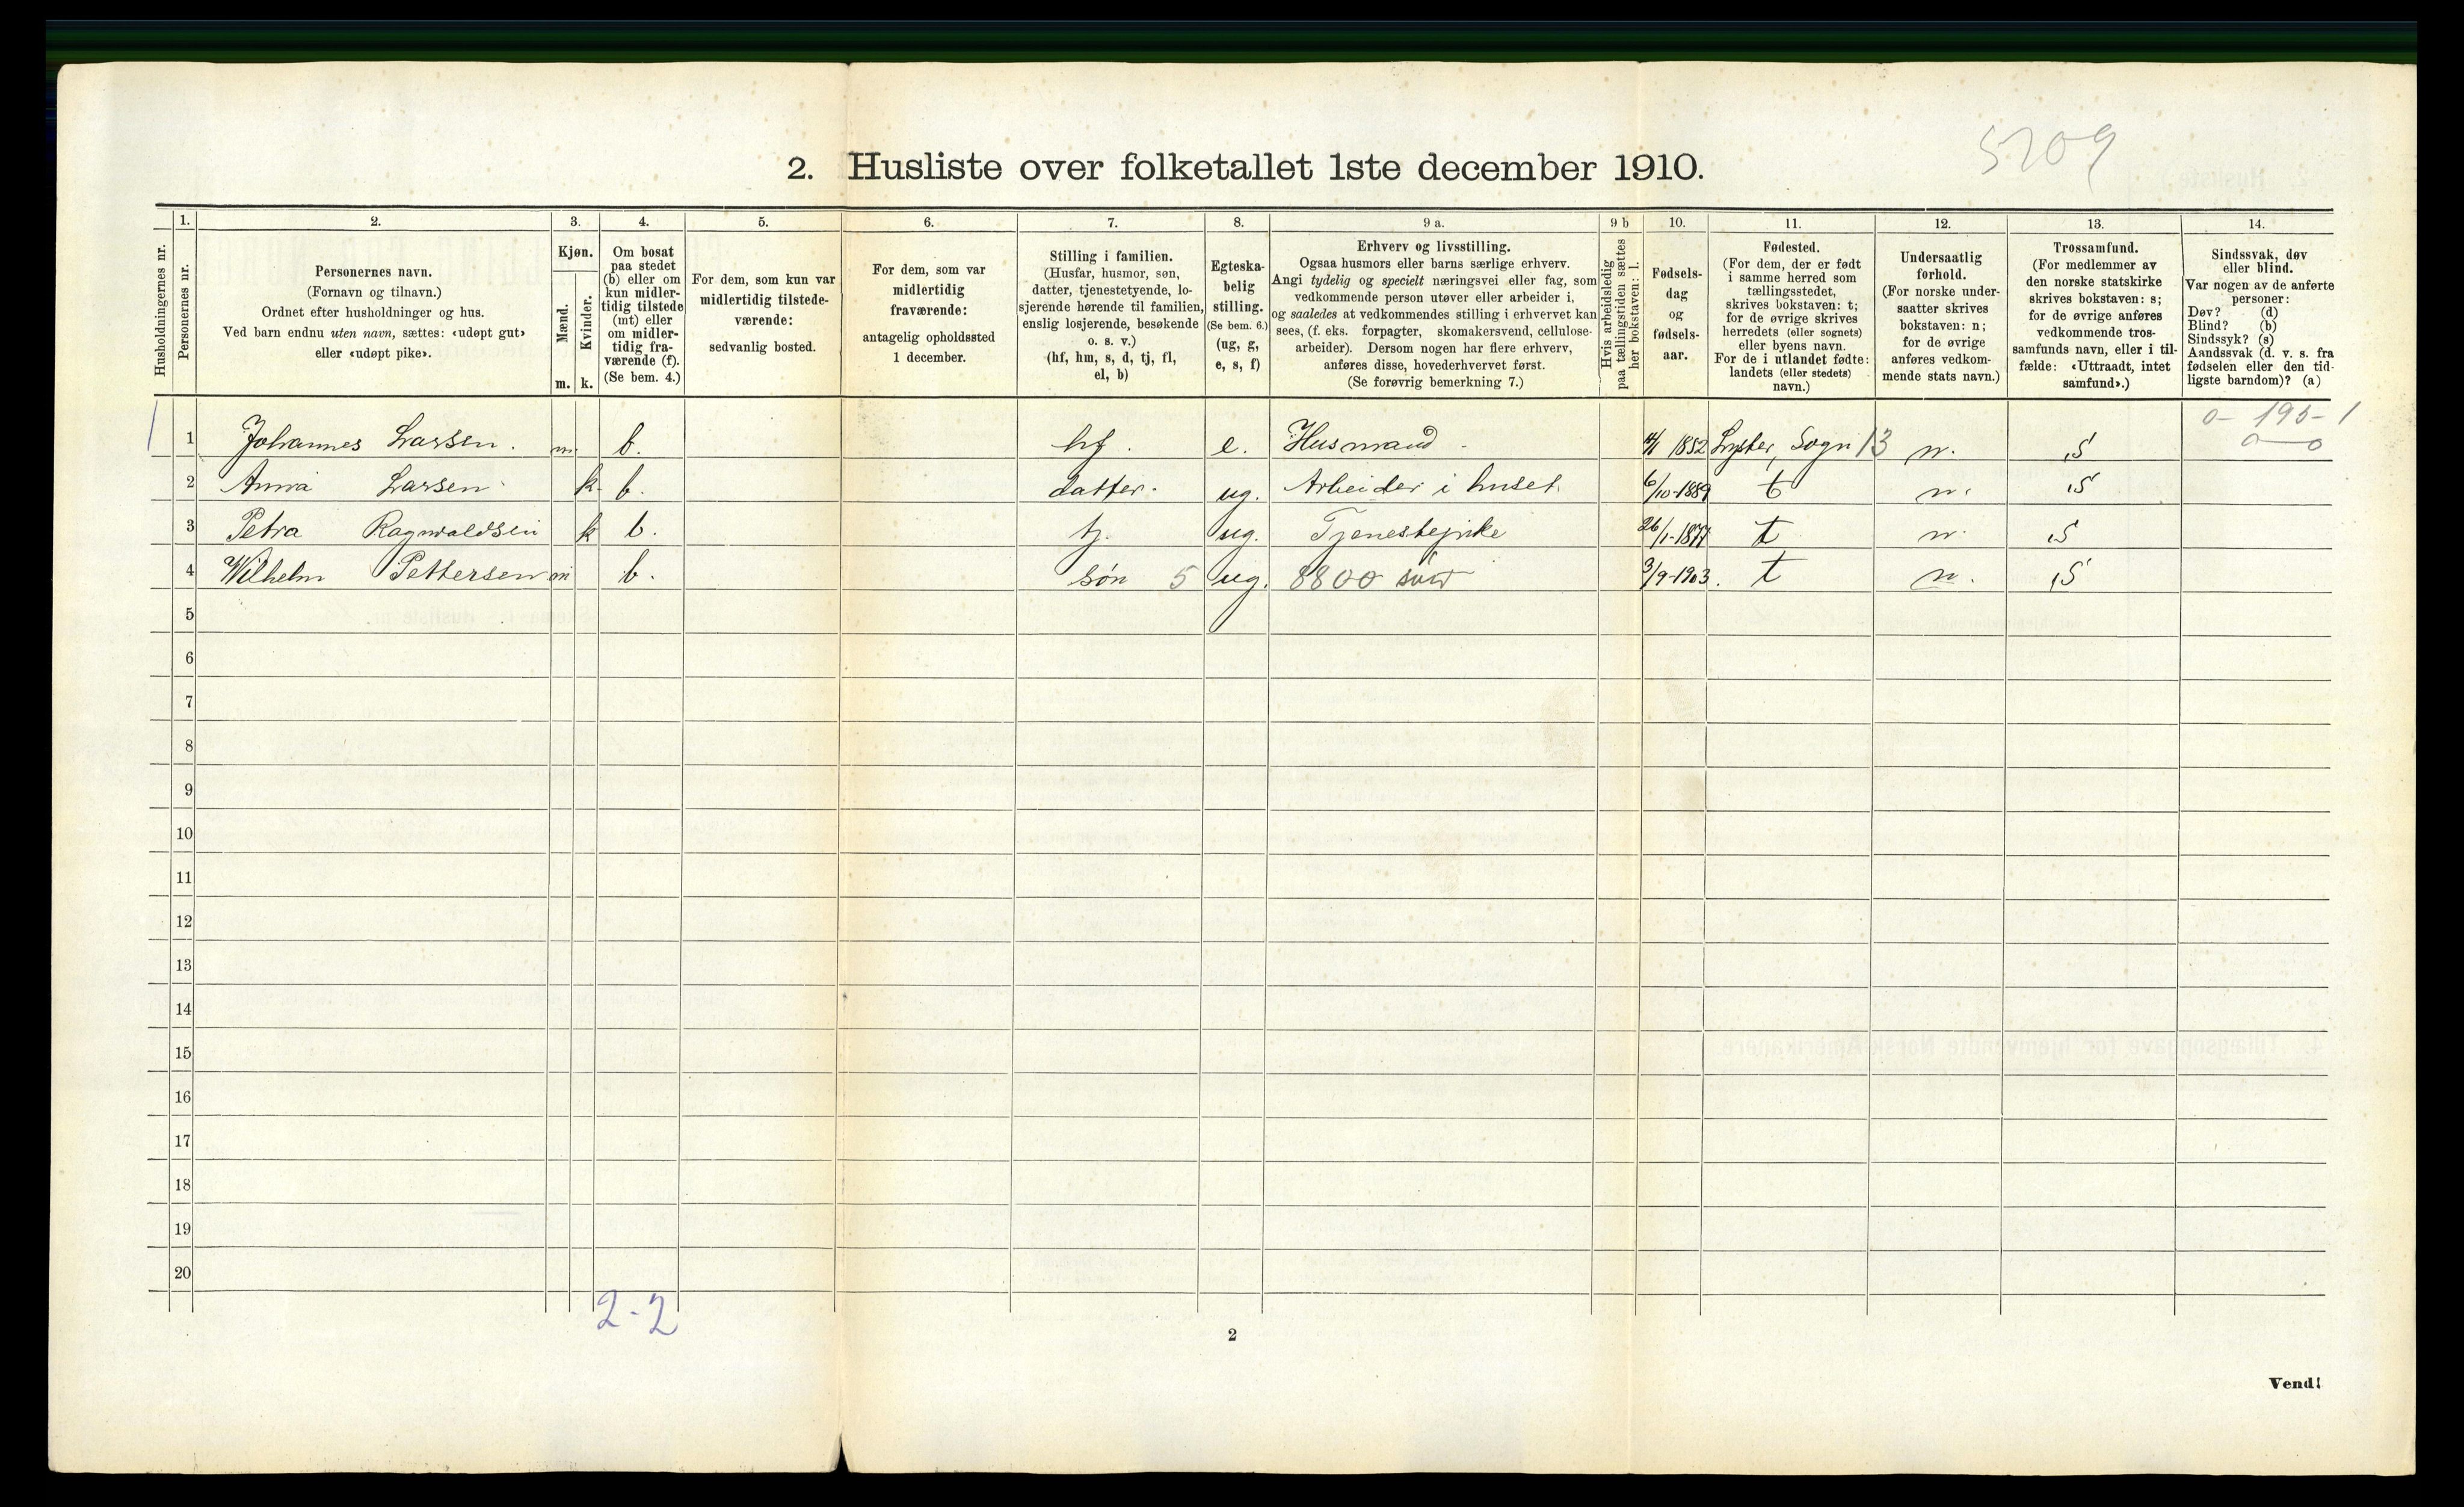 5209
2. Husliste over folketallet 1ste december 1910.
Husholdningernes nr.
1.
Personernes nr.
2.
Personernes navn.
(Fornavn og tilnavn.)
Ordnet efter husholdninger og hus.
Ved barn endnu uten navn, sættes: «udøpt gut»
eller «udøpt pike».
3.
Kjøn.
Mænd.
Kvinder.
m. k.
4.
Om bosat
paa stedet
(b) eller om
kun midler-
tidig tilstede
(mt) eller
om midler-
tidig fra-
værende (f).
(Se bem. 4.)
5.
For dem, som kun var
midlertidig tilstede-
værende:
sedvanlig bosted.
6.
For dem, som var
midlertidig
fraværende:
antagelig opholdssted
1 december.
7.
Stilling i familien.
(Husfar, husmor, søn,
datter, tjenestetyende, lo-
sjerende hørende til familien,
enslig losjerende, besøkende
o. s. v.)
(hf, hm, s, d, tj, fl,
el, b)
8.
Egteska-
belig
stilling.
(Se bem. 6.)
(ug, g,
e, s, f)
9 a.
Erhverv og livsstilling.
Ogsaa husmors eller barns særlige erhverv.
Angi tydelig og specielt næringsvei eller fag, som
vedkommende person utøver eller arbeider i,
og saaledes at vedkommendes stilling i erhvervet kan
sees, (f. eks. forpagter, skomakersvend, cellulose-
arbeider). Dersom nogen har flere erhverv,
anføres disse, hovederhvervet først.
(Se forøvrig bemerkning 7.)
9 b
Hvis arbeidsledig
paa tællingstiden sættes
her bokstaven: l.
10.
Fødsels-
dag
og
fødsels-
aar.
11.
Fødested.
(For dem, der er født
i samme herred som
tællingsstedet,
skrives bokstaven: t;
for de øvrige skrives
herredets (eller sognets)
eller byens navn.
For de i utlandet fødte:
landets (eller stedets)
navn.)
12.
Undersaatlig
forhold.
(For norske under-
saatter skrives
bokstaven: n;
for de øvrige
anføres vedkom-
mende stats navn.)
13.
Trossamfund.
(For medlemmer av
den norske statskirke
skrives bokstaven: s;
for de øvrige anføres
vedkommende tros-
samfunds navn, eller i til-
fælde: «Uttraadt, intet
samfund».)
14.
Sindssvak, døv
eller blind.
Var nogen av de anførte
personer:
Døv? (d)
Blind? (b)
Sindssyk? (s)
Aandssvak (d. v. s. fra
fødselen eller den tid-
ligste barndom)? (a)
0 - 195 - 1
0 — 0
1 Johannes Larsen. m. b. hf. e. Husmand 1852 Lyster, Sogn 13 n. S
2 Anna Larsen k. b. datter. ug. Arbeider i huset. 6/10-1889 t n. S
3 Petra Ragnvaldsen k b. tj. ug. Tjenestepike 26/1-1877 t n. S
4 Wilhelm Pettersen m b. søn 5 ug. 8800 søn 3/9-1903. t n. S
5
6
7
8
9
10
11
12
13
14
15
16
17
18
19
20
2-2
2
Vend!